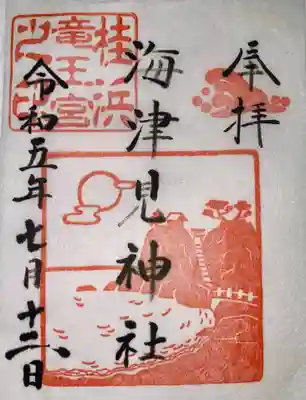 奉拝
海津見神社
令和五年七月十三日
桂浜
竜王宮
之印